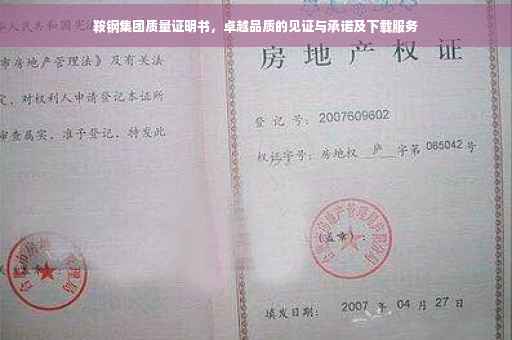 鞍钢集团质量证明书，卓越品质的见证与承诺及下载服务
华人民共和国宪
市房地产管理法》及有关法
定，对权利人申请登记本证所
审查属实，准予登记，特发此
房地产权证
登记号：2007609602
权证字号：房地权 庐 字第 065042 号
(盖章)：
填发日期：2007 年 04 月 27 日